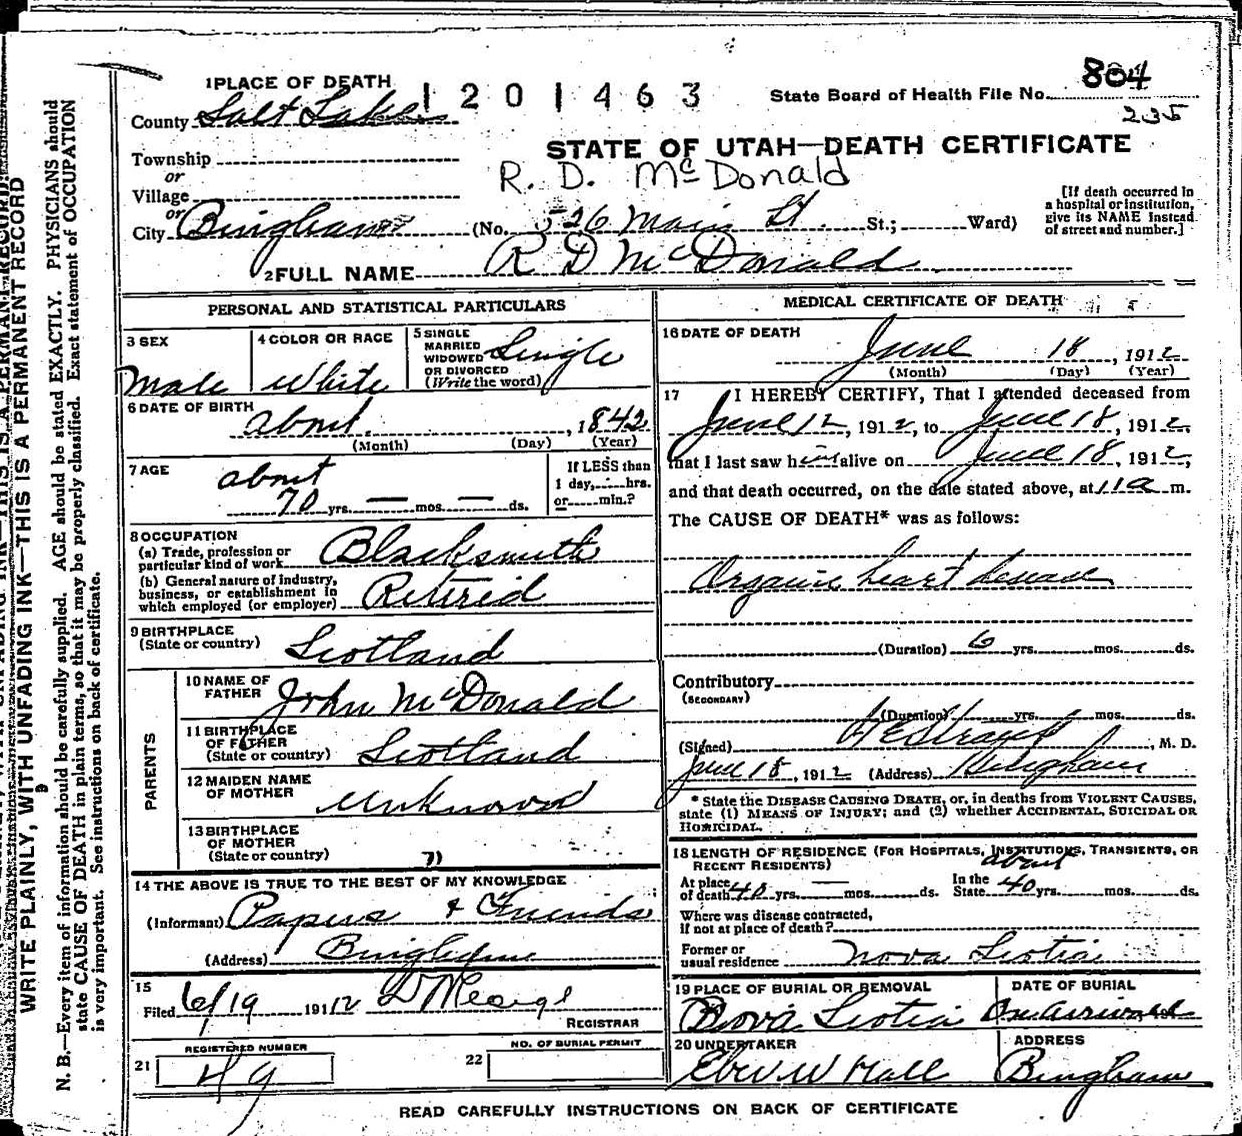 1 PLACE OF DEATH
1201463
State Board of Health File No. 804
235
County Salt Lake
STATE OF UTAH—DEATH CERTIFICATE
Township
or
R. D. McDonald
Village
or
City Bingham (No. 526 Main St. St.; Ward)
[If death occurred in
a hospital or institution,
give its NAME instead
of street and number.]
2 FULL NAME R D McDonald
PERSONAL AND STATISTICAL PARTICULARS
3 SEX
Male
4 COLOR OR RACE
White
5 SINGLE
MARRIED
WIDOWED
OR DIVORCED
(Write the word)
Single
6 DATE OF BIRTH
about , 1842
(Month) (Day) (Year)
7 AGE
about
70 yrs. — mos. — ds.
If LESS than
1 day, hrs.
or min.?
8 OCCUPATION
(a) Trade, profession or
particular kind of work Blacksmith
(b) General nature of industry,
business, or establishment in
which employed (or employer) Retired
9 BIRTHPLACE
(State or country) Scotland
PARENTS
10 NAME OF
FATHER John McDonald
11 BIRTHPLACE
OF FATHER
(State or country) Scotland
12 MAIDEN NAME
OF MOTHER Unknown
13 BIRTHPLACE
OF MOTHER
(State or country) "
14 THE ABOVE IS TRUE TO THE BEST OF MY KNOWLEDGE
(Informant) Papers & Friends
(Address) Bingham
15
Filed 6/19 1912
REGISTRAR
21 REGISTERED NUMBER
49
22 NO. OF BURIAL PERMIT
MEDICAL CERTIFICATE OF DEATH
16 DATE OF DEATH
June 18, 1912
(Month) (Day) (Year)
17 I HEREBY CERTIFY, That I attended deceased from
June 12, 1912, to June 18, 1912,
that I last saw him alive on June 18, 1912,
and that death occurred, on the date stated above, at 11 a m.
The CAUSE OF DEATH* was as follows:
Organic heart disease
(Duration) 6 yrs. mos. ds.
Contributory
(SECONDARY)
(Duration) yrs. mos. ds.
(Signed) H E Straup, M. D.
June 18, 1912 (Address) Bingham
* State the DISEASE CAUSING DEATH, or, in deaths from VIOLENT CAUSES,
state (1) MEANS OF INJURY; and (2) whether ACCIDENTAL, SUICIDAL OR
HOMICIDAL.
18 LENGTH OF RESIDENCE (FOR HOSPITALS, INSTITUTIONS, TRANSIENTS, OR
RECENT RESIDENTS) about
At place
of death 40 yrs. — mos. ds.
In the
State 40 yrs. mos. ds.
Where was disease contracted,
if not at place of death?
Former or
usual residence Nova Scotia
19 PLACE OF BURIAL OR REMOVAL
Nova Scotia
DATE OF BURIAL
On arrival
20 UNDERTAKER
Eber W Hall
ADDRESS
Bingham
READ CAREFULLY INSTRUCTIONS ON BACK OF CERTIFICATE
WRITE PLAINLY, WITH UNFADING INK—THIS IS A PERMANENT RECORD
N. B.—Every item of information should be carefully supplied. AGE should be stated EXACTLY. PHYSICIANS should
state CAUSE OF DEATH in plain terms, so that it may be properly classified. Exact statement of OCCUPATION
is very important. See instructions on back of certificate.